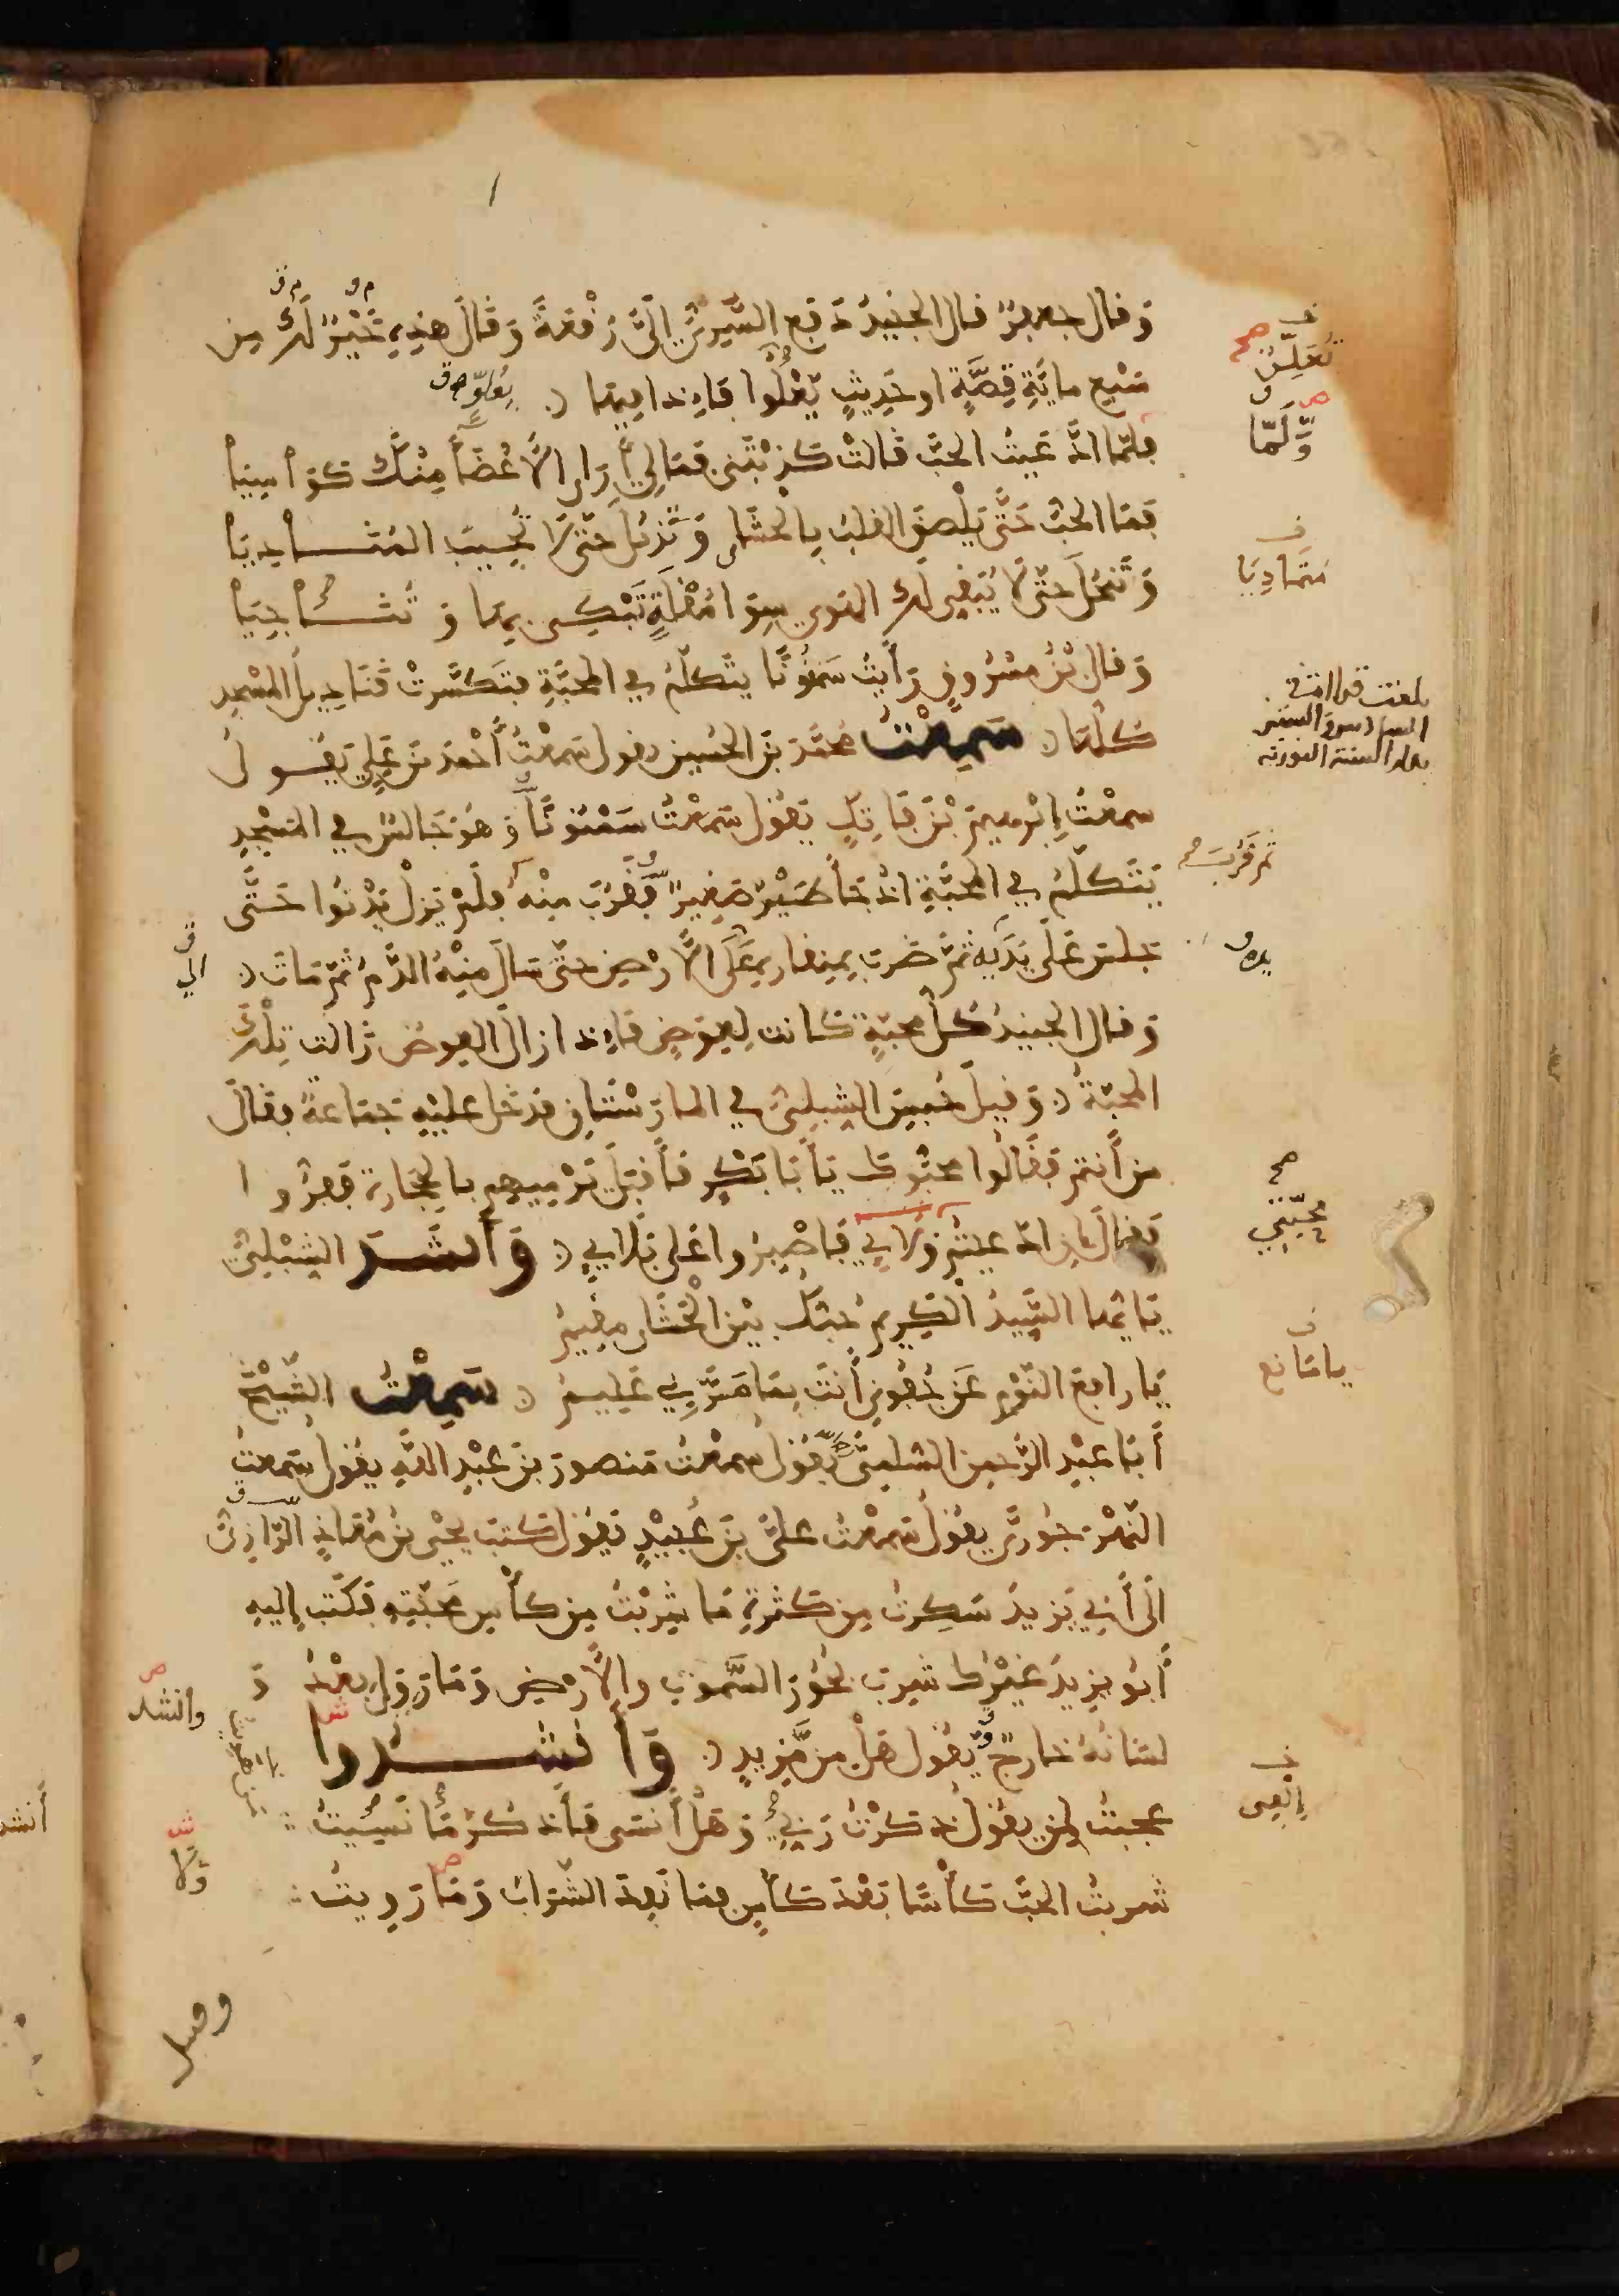 وقال جعفر قال الجنيد دفع السري إلي رقعة وقال هذه خير لك من
سبع مائة قصة او حديث يعلوا فإذا فيها
فلما ادعيت الحب قالت كذبتني فما لي أرى الأعضاء منك كواسيا
فما الحب حتى يلصق القلب بالحشا وتذبل حتى لا تجيب المناديا
وتنحل حتى لا يبقي لك الهوى سوا مقلة تبكي بها وتناجيا
وقال بن مسروق رأيت سمنونا يتكلم في المحبة فتكسرت قناديل المسجد
كلها سمعت محمد بن الحسين يقول سمعت أحمد بن علي يقول
سمعت إبرهيم بن فاتك يقول سمعت سمنونا وهو جالس في المسجد
يتكلم في المحبة اذ جاء طير صغير فقرب منه فلم يزل يدنوا حتى
جلس على يديه ثم ضرب بمنقاره على الأرض حتى سال منه الدم ثم مات
وقال الجنيد كل محبة كانت لعوض فإذا زال العوض زالت تلك
المحبة وقيل حبس الشبلي في المارستان فدخل عليه جماعة فقال
من أنتم فقالوا محبوك يا أبا بكر فأقبل يرميهم بالحجارة ففروا
فقال إن ادعيتم ولائي فاصبروا على بلائي وأنشد الشبلي
يا أيها السيد الكريم حبك بين الحشا مقيم
يا رافع النوم عن جفوني أنت بما مر بي عليم سمعت الشيخ
أبا عبد الرحمن السلمي يقول سمعت منصور بن عبد الله يقول سمعت
النهرجوري يقول سمعت علي بن عبيد يقول كتب يحيى بن معاذ الرازي
الى أبي يزيد سكرت من كثرة ما شربت من كأس محبته فكتب إليه
أبو يزيد غيرك شرب بحور السموات والأرض وما روي بعد و
لسانه خارج يقول هل من مزيد وأنشدوا
عجبت لمن يقول ذكرت ربي وهل أنسى فأذكر ما نسيت
شربت الحب كأسا بعد كأس فما نفد الشراب وما رويت
ولما
متماديا
ثم قرب
يده
الي
محبيني
يا مانع
وانشد
ولا
وقيل